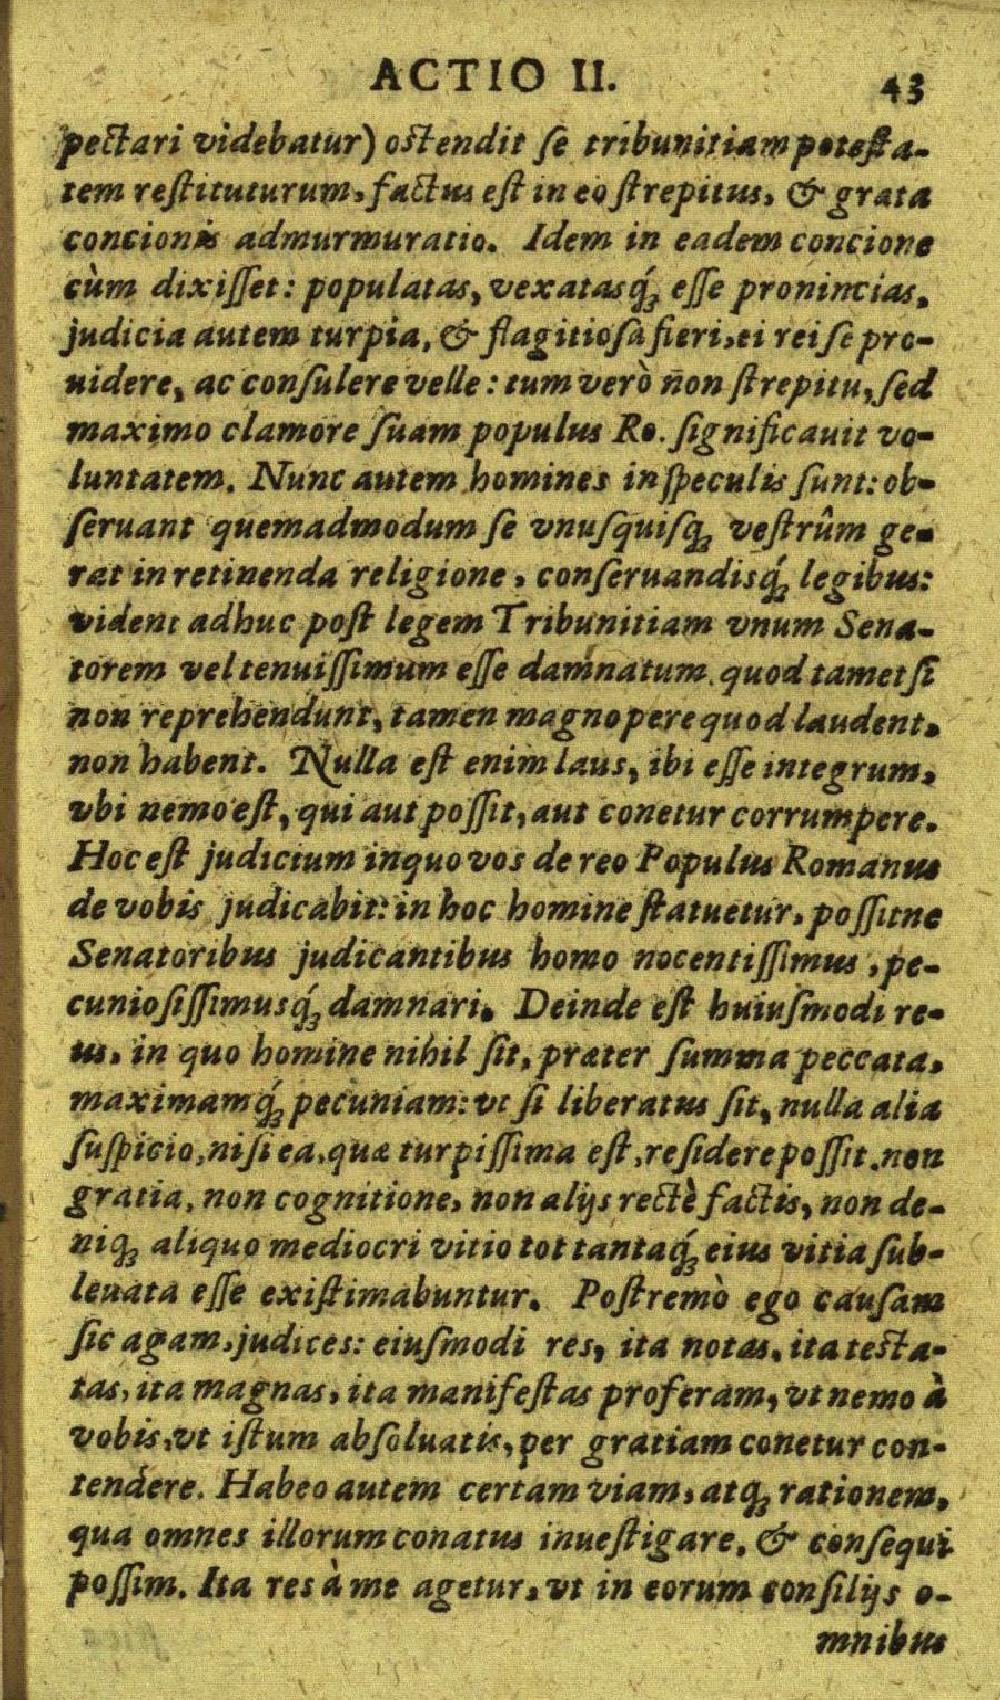 ACTIO II. 43
pectari videbatur) ostendit se tribunitiam potesta-
tem restituturum, factus est in eo strepitus, & grata
concionis admurmuratio. Idem in eadem concione
cùm dixisset: populatas, vexatasq́; esse pronincias,
judicia autem turpia, & flagitiosa fieri, ei rei se pro-
uidere, ac consulere velle: tum verò non strepitu, sed
maximo clamore suam populus Ro. significauit vo-
luntatem. Nunc autem homines in speculis sunt: ob-
seruant quemadmodum se vnusquisq; vestrûm ge-
rat in retinenda religione, conseruandisq́; legibus:
vident adhuc post legem Tribunitiam vnum Sena-
torem vel tenuissimum esse damnatum, quod tametsi
non reprehendunt, tamen magnopere quod laudent,
non habent. Nulla est enim laus, ibi esse integrum,
vbi nemo est, qui aut possit, aut conetur corrumpere.
Hoc est judicium in quo vos de reo Populus Romanus
de vobis judicabit: in hoc homine statuetur, possitne
Senatoribus judicantibus homo nocentissimus, pe-
cuniosissimusq́; damnari. Deinde est huiusmodi re-
us, in quo homine nihil sit, præter summa peccata,
maximamq́; pecuniam: vt si liberatus sit, nulla alia
suspicio, nisi ea, quæ turpissima est, residere possit. non
gratia, non cognitione, non alijs rectè factis, non de-
niq; aliquo mediocri vitio tot tantaq́; eius vitia sub-
leuata esse existimabuntur. Postremò ego causam
sic agam, judices: eiusmodi res, ita notas, ita testa-
tas, ita magnas, ita manifestas proferam, vt nemo à
vobis, vt istum absoluatis, per gratiam conetur con-
tendere. Habeo autem certam viam, atq; rationem,
qua omnes illorum conatus inuestigare, & consequi
possim. Ita res à me agetur, vt in eorum consilijs o-
mnibus